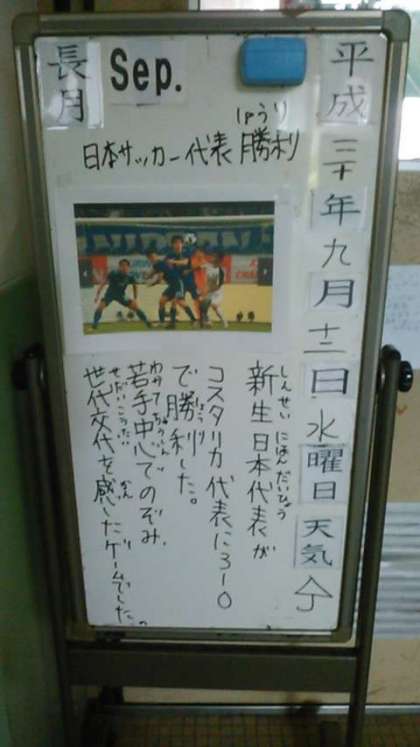 平成三十年九月十二日水曜日天気
長月
Sep.
しょうり
日本サッカー代表勝利
しんせいにほんだいひょう
新生日本代表が
コスタリカ代表に3-0
しょうり
で勝利した。
わかてちゅうしん
若手中心でのぞみ、
せだいこうたい かん
世代交代を感じたゲームでした。